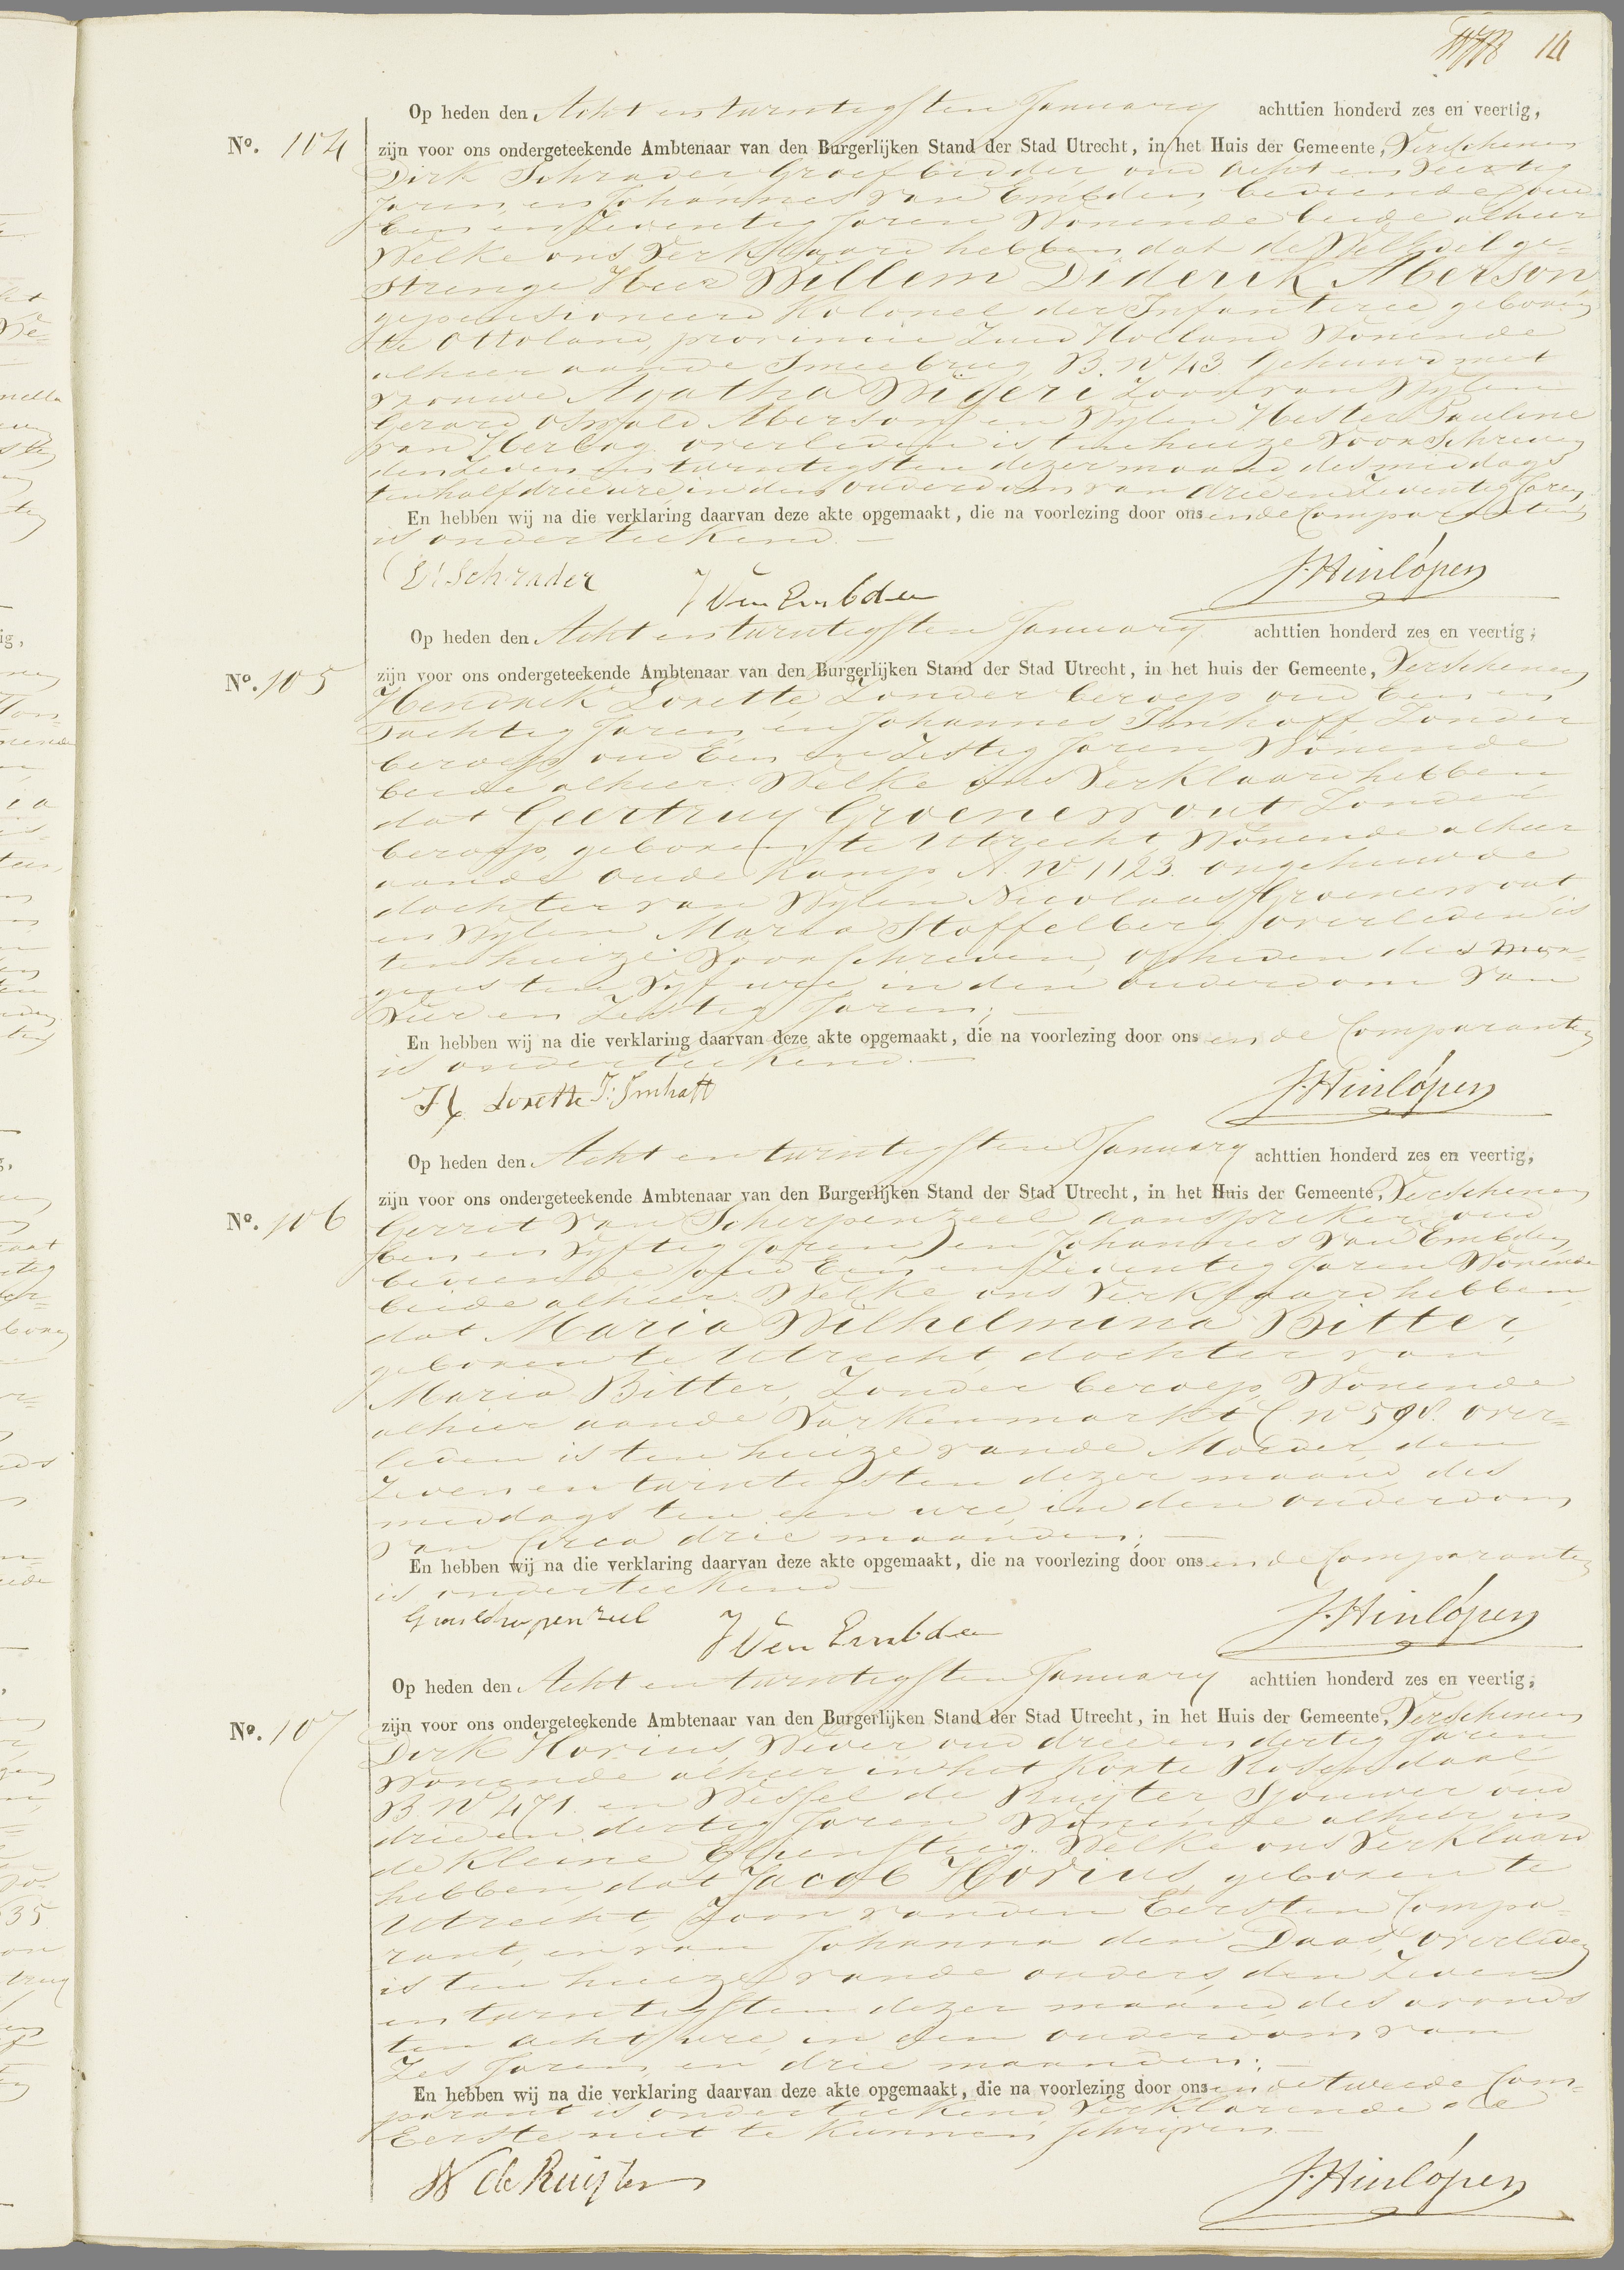 14
Op heden den Acht en twintigsten January achttien honderd zes en veertig,
No. 104 zijn voor ons ondergeteekende Ambtenaar van den Burgerlijken Stand der Stad Utrecht, in het Huis der Gemeente, Verschenen
Dirk Schrader Groefbidder oud acht en
Jaren, en Johannes van Embden, bediende oud
Een en Zeventig Jaren Wonende beide alhier
Welke ons Verklaard hebben dat de WelEdel ge=
strenge Heer Willem Diderik Aberson,
gepensioneerd Kolonel der Infanterie geboren
te Ottoland, provincie Zuid Holland Wonende
alhier aande Smeebrug B. No 43. Gehuwd met
Vrouwe Agatha Wijeri Zoon van Wylen
Gerard Oswald Aberson en Wylen Hester Pauline
van Hertog overleden is ten huize Voorschreven
den Zeven en twintigsten dezer maand des middags
ten half drie ure in den ouderdom van drie en Zeventig Jaren
En hebben wij na die verklaring daarvan deze akte opgemaakt, die na voorlezing door ons en de Comparanten
is onderteekend.
D: Schrader J Van Embden J. Hinlópen
Op heden den Acht en twintigsten January achttien honderd zes en veertig;
No. 105 zijn voor ons ondergeteekende Ambtenaar van den Burgerlijken Stand der Stad Utrecht, in het huis der Gemeente, Verschenen
Hendrik Lorette Zonder beroep oud Een en
Tachtig Jaren, en Johannes Imhoff, Zonder
beroep, oud Een en Zestig Jaren Wonende
beide alhier. Welke ons Verklaard hebben
dat Geertruy Groenewout Zonder
beroep, geboren te Utrecht, Wonende alhier
aande oude Kamp A. No 1123. ongehuwde
dochter van Wylen Nicolaas Groenewout
en Wylen Maria Stoffelberg, overleden is
ten huize Voorschreven, op heden des mor=
gens ten Vyf ure, in den ouderdom van
Vier en Zestig Jaren;
En hebben wij na die verklaring daarvan deze akte opgemaakt, die na voorlezing door ons en de Comparanten
is onderteekend.
H Lorette J: Imhoff J. Hinlópen
Op heden den Acht en twintigsten January achttien honderd zes en veertig,
zijn voor ons ondergeteekende Ambtenaar van den Burgerlijken Stand der Stad Utrecht, in het Huis der Gemeente, Verschenen
No. 106 Gerret van Scherpenzeel, aanspreker oud
Een en Vyftig Jaren, en Johannes van Embden
bediende oud Een en Zeventig Jaren Wonende
beide alhier. Welke ons Verklaard hebben,
dat Maria Wilhelmina Bitter,
geboren te Utrecht, dochter van
Maria Bitter, Zonder beroep, Wonende
alhier aande Varkenmarkt C No 598. over=
leden is ten huize vande Moeder, den
Zeven en twintigsten dezer maand des
middags ten een ure, in den ouderdom
van Circa drie maanden;
En hebben wij na die verklaring daarvan deze akte opgemaakt, die na voorlezing door ons en de Comparanten
is onderteekend
G van Scherpenzeel J Van Embden J. Hinlópen
Op heden den Acht en twintigsten January achttien honderd zes en veertig;
No. 107 zijn voor ons ondergeteekende Ambtenaar van den Burgerlijken Stand der Stad Utrecht, in het Huis der Gemeente, Verschenen
Dirk Horius, Wever oud drie en dertig Jaren
Wonende alhier in het Korte Rosendaal
B. No 471. en Wessel de Ruijter Sjouwer oud
drie en dertig Jaren Wonende alhier in
de Kleine Welke ons Verklaard
hebben, dat Jacob Horius, geboren te
Utrecht, Zoon vanden Eersten Compa=
rant, en van Johanna den Daas, overleden
is ten huize vande ouders, den Zeven
en twintigsten dezer maand des avonds
ten acht ure, in den ouderdom van
Zes Jaren, en drie maanden;
En hebben wij na die verklaring daarvan deze akte opgemaakt, die na voorlezing door ons en de tweede Com=
parant is onderteekend, Verklarende de
Eerste niet te kunnen schrijven.
W de Ruijter J. Hinlópen